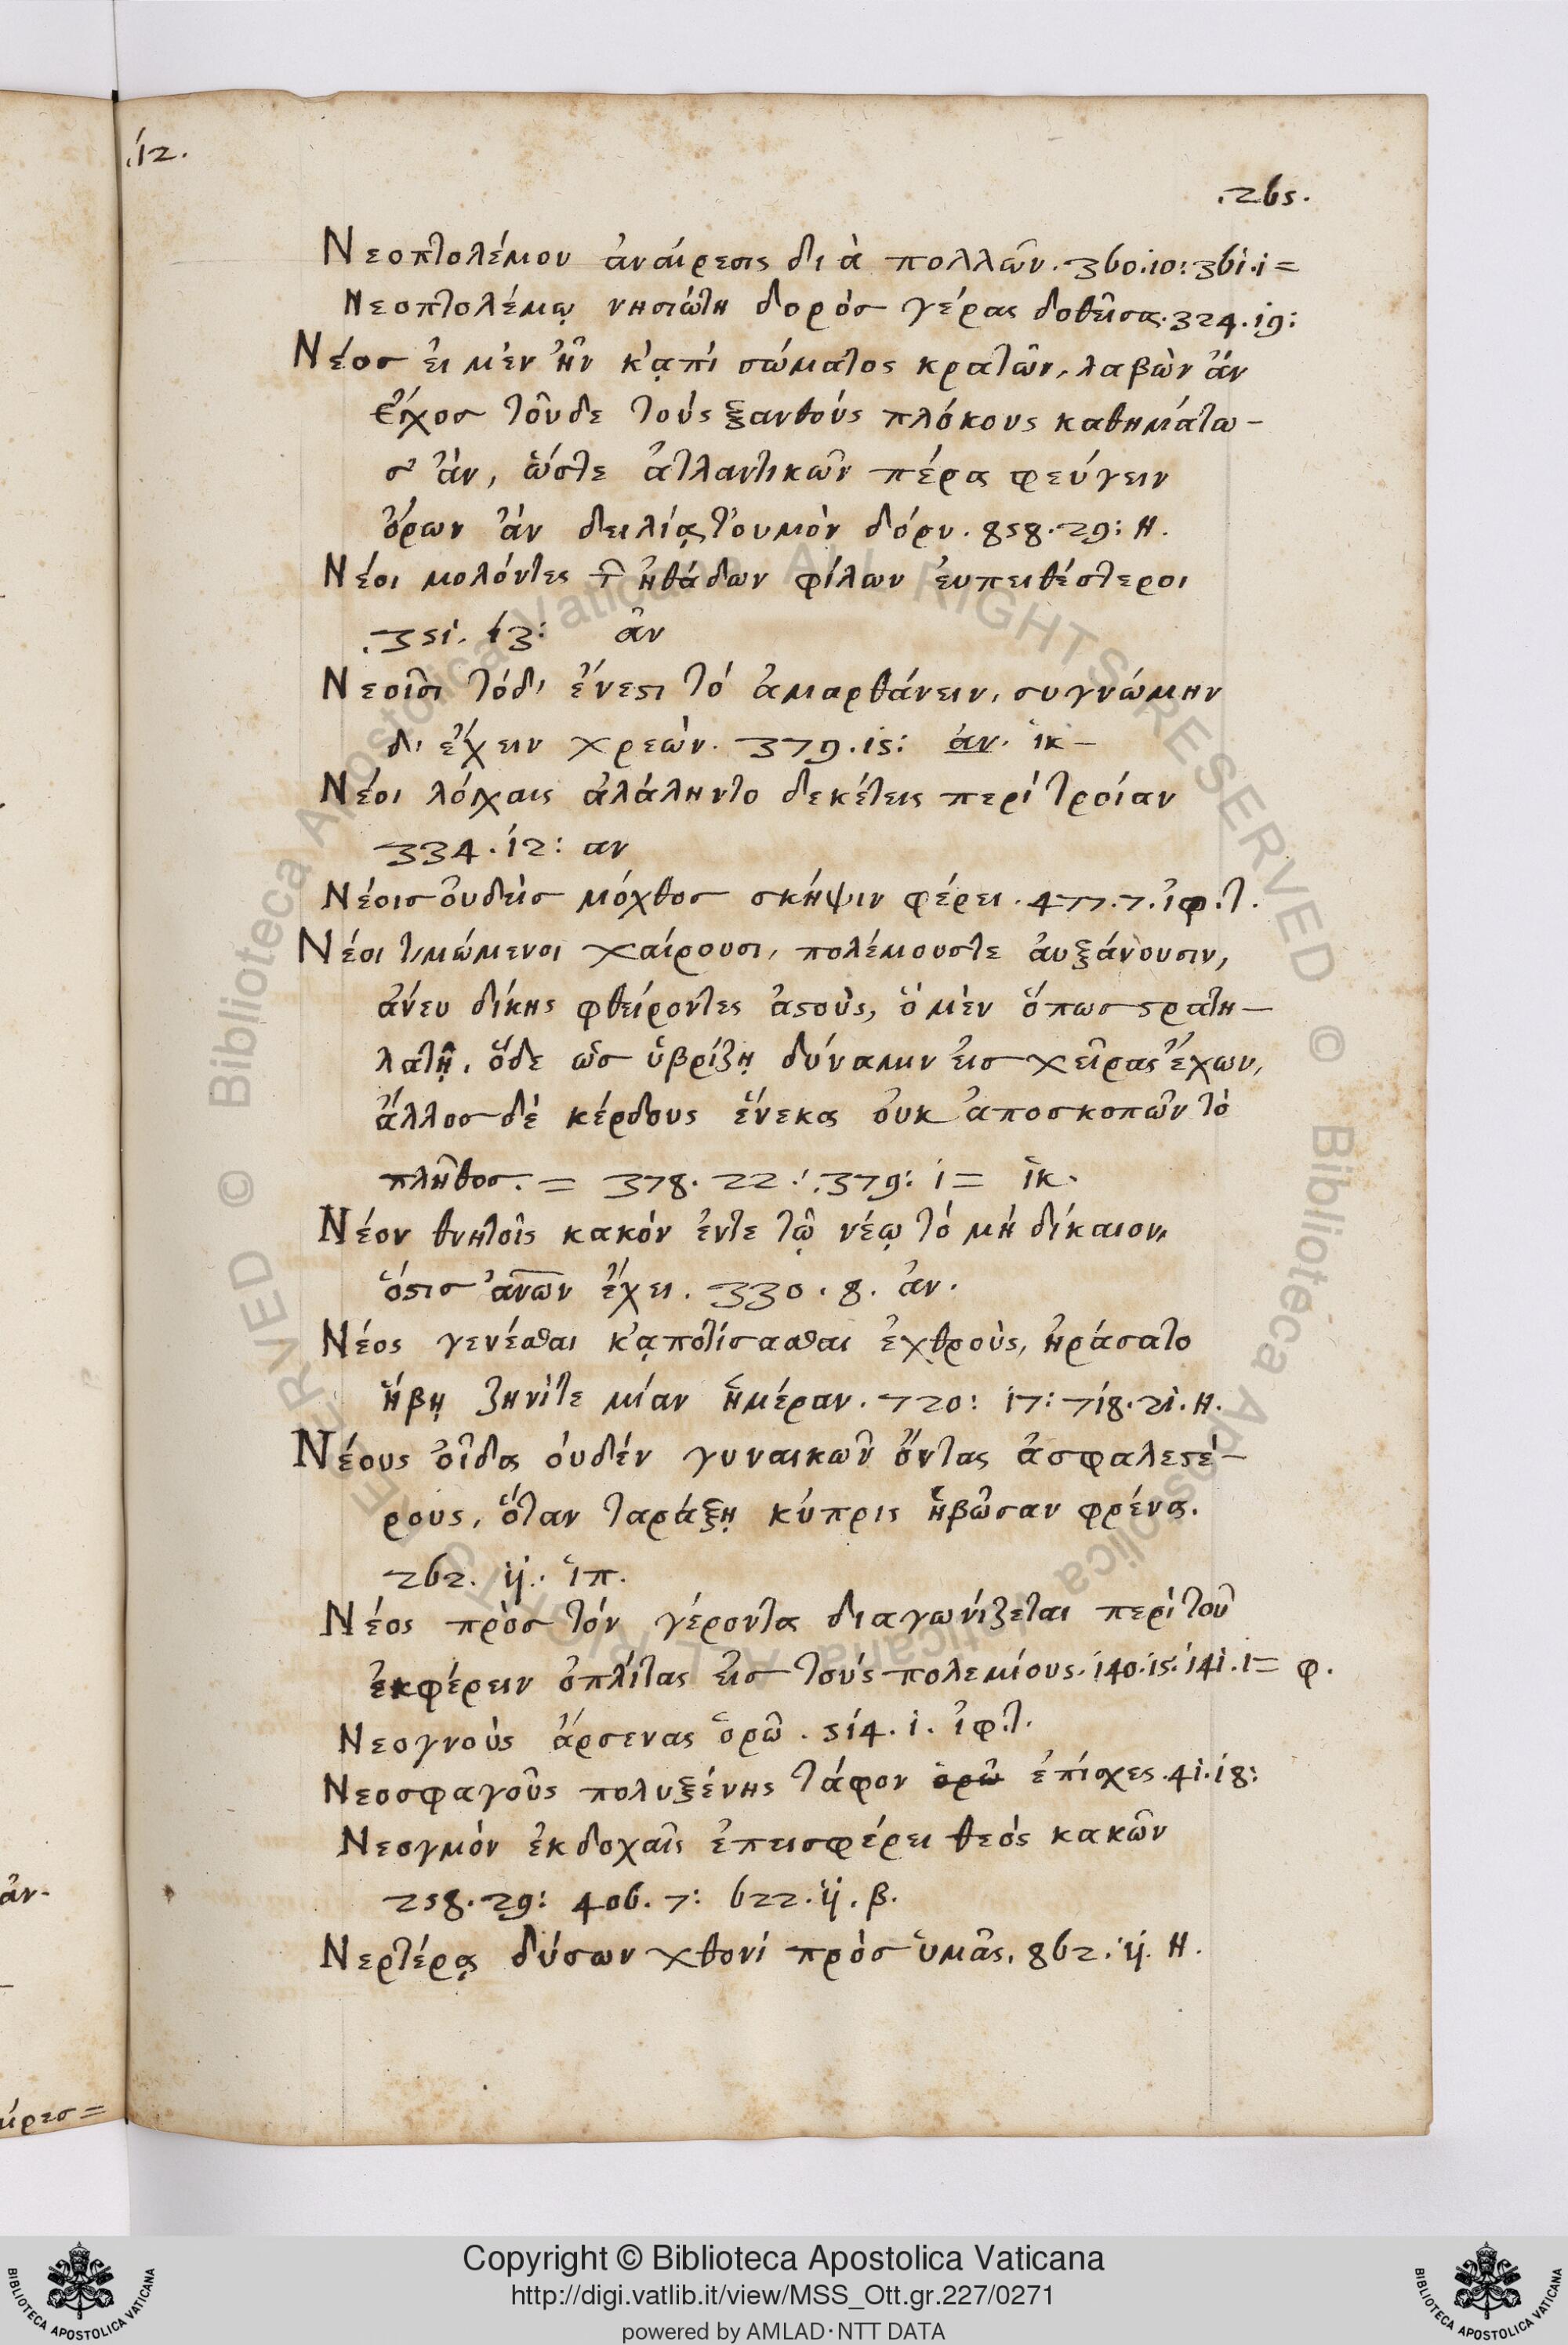 .12.
.265.
Νεοπτολέμου ἀναίρεσις διὰ πολλῶν. 360.10: 361.1=
Νεοπτολέμῳ νησιώτῃ δορὸς γέρας δοθεῖσα. 324.19:
Νέος εἰ μὲν ἦν κᾀπὶ σώματος κρατῶν, λαβὼν ἂν
ἔγχος τοῦδε τοὺς ξανθοὺς πλόκους καθημάτω-
σ' ἂν, ὥστε ἀτλαντικῶν πέρα φεύγειν
ὅρων ἂν δειλίᾳ τοὐμὸν δόρυ. 858.29: Η.
Νέοι μολόντες τ̑ ἠθάδων φίλων εὐπειθέστεροι
.351.13: ἂν
Νεοῖσι τόδ' ἔνεστι τὸ ἁμαρθάνειν, συγνώμην
δ' ἔχειν χρεὼν. 379.15: ἀν. ἱκ-
Νέοι λόγχαις ἀλάληντο δεκέτεις περὶ τροίαν
334.12: αν
Νέοις οὐδεὶς μόχθος σκῆψιν φέρει. 477.7. ἰφ.τ.
Νέοι τιμώμενοι χαίρουσι, πολέμους τε αὐξάνουσιν,
ἄνευ δίκης φθείροντες ἀστοὺς, ὁ μὲν ὅπως στρατη-
λατῇ, ὅδε ὡς ὑβρίζῃ δύναμιν εἰς χεῖρας ἔχων,
ἄλλος δὲ κέρδους ἕνεκα οὐκ ἀποσκοπῶν τὸ
πλῆθος. = 378.22: 379: 1= ἱκ.
Νέον θνητοῖς κακόν ἔν τε τῷ νέῳ τὸ μὴ δίκαιον,
ὅστις ἀν̅ω̅ν ἔχει. 330.8. ἀν.
Νέος γενέσθαι κᾀποτίσασθαι ἐχθροὺς, ἠράσατο
ἥβῃ ζηνί τε μίαν ἡμέραν. 720: 17: 718.21. Η.
Νέους οἶδα οὐδέν γυναικῶν ὄντας ἀσφαλεστέ-
ρους, ὅταν ταράξῃ κύπρις ἡβῶσαν φρένα.
262. 11: ἱπ.
Νέος πρὸς τόν γέροντα διαγωνίζεται περὶ τοῦ
ἐκφέρειν ὁπλίτας εἰς τοὺς πολεμίους. 140.15: 141.1= φ.
Νεογνοὺς ἄρσενας ὁρῶ. 514.1. ἰφ.τ.
Νεοσφαγοῦς πολυξένης τάφον ὁρῶ ἐπίσχες. 41.18:
Νεογμὸν ἐκδοχαῖς ἐπεισφέρει θεὸς κακῶν
258.29: 406.7: 622.11. β.
Νερτέρᾳ δύσων χθονί πρὸς ὑμᾶς. 862. 11. Η.
ἂν.
Copyright © Biblioteca Apostolica Vaticana
http://digi.vatlib.it/view/MSS_Ott.gr.227/0271
powered by AMLAD·NTT DATA